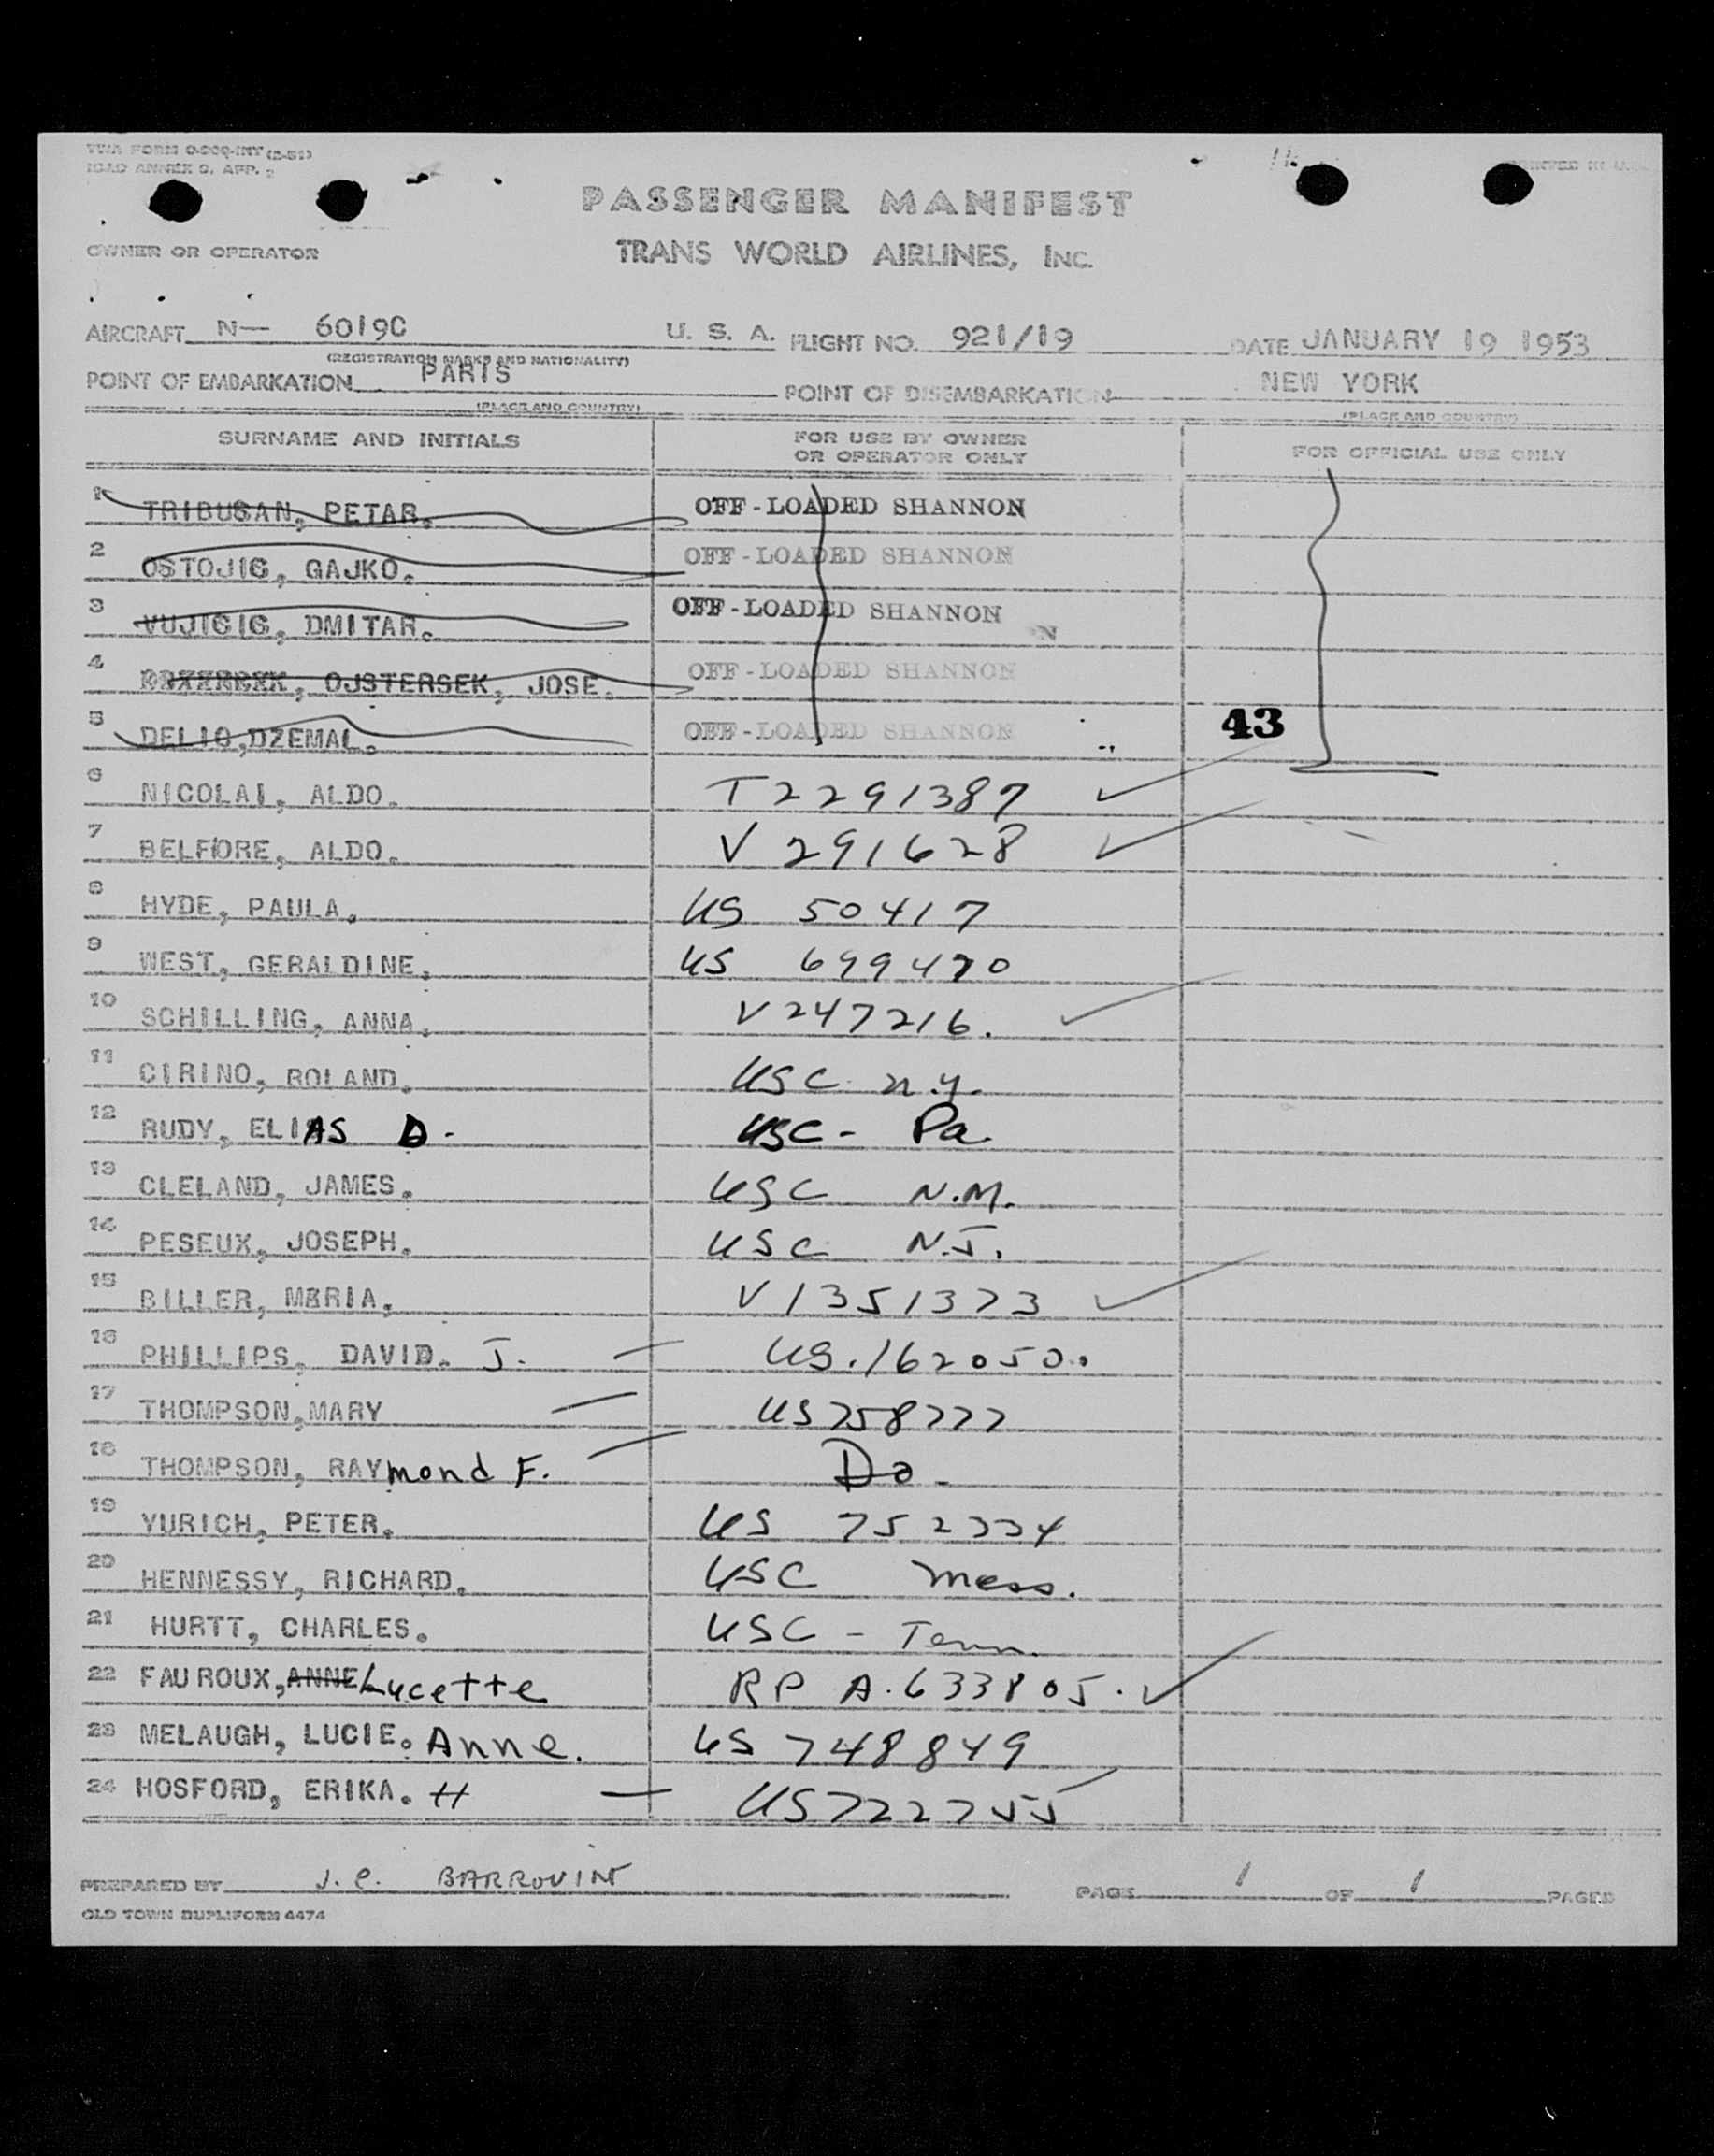 TWA FORM O-300-INT (2-51)
ICAO ANNEX 9, APP. 2
PASSENGER MANIFEST
OWNER OR OPERATOR TRANS WORLD AIRLINES, INC.
AIRCRAFT N— 6019C U. S. A. FLIGHT NO. 921/19 DATE JANUARY 19 1953
(REGISTRATION MARKS AND NATIONALITY)
POINT OF EMBARKATION PARIS POINT OF DISEMBARKATION NEW YORK
(PLACE AND COUNTRY) (PLACE AND COUNTRY)
SURNAME AND INITIALS FOR USE BY OWNER OR OPERATOR ONLY FOR OFFICIAL USE ONLY
1 TRIBUSAN, PETAR. OFF-LOADED SHANNON
2 OSTOJIC, GAJKO. OFF-LOADED SHANNON
3 VUJICIC, DMITAR. OFF-LOADED SHANNON
4 OJSTERSEK, JOSE. OFF-LOADED SHANNON
5 DELIC,DZEMAL. OFF-LOADED SHANNON 43
6 NICOLAI, ALDO. T2291387
7 BELFIORE, ALDO. V 291628
8 HYDE, PAULA. US 50417
9 WEST, GERALDINE. US 699470
10 SCHILLING, ANNA. V247216.
11 CIRINO, ROLAND. USC n.y.
12 RUDY, ELIAS D. USC - Pa.
13 CLELAND, JAMES. USC N.M.
14 PESEUX, JOSEPH. USC N.J.
15 BILLER, MARIA. V1351373
16 PHILLIPS, DAVID. J. US.162050.
17 THOMPSON,MARY US758777
18 THOMPSON, RAYmond F. Do
19 YURICH, PETER. US 752334
20 HENNESSY, RICHARD. USC Mass.
21 HURTT, CHARLES. USC - Tenn.
22 FAUROUX,ANNE Lucette RP A.633805.
23 MELAUGH, LUCIE. Anne. US 748849
24 HOSFORD, ERIKA. H US722755
PREPARED BY J. C. BARROUIN PAGE 1 OF 1 PAGES
OLD TOWN DUPLIFORM 4474